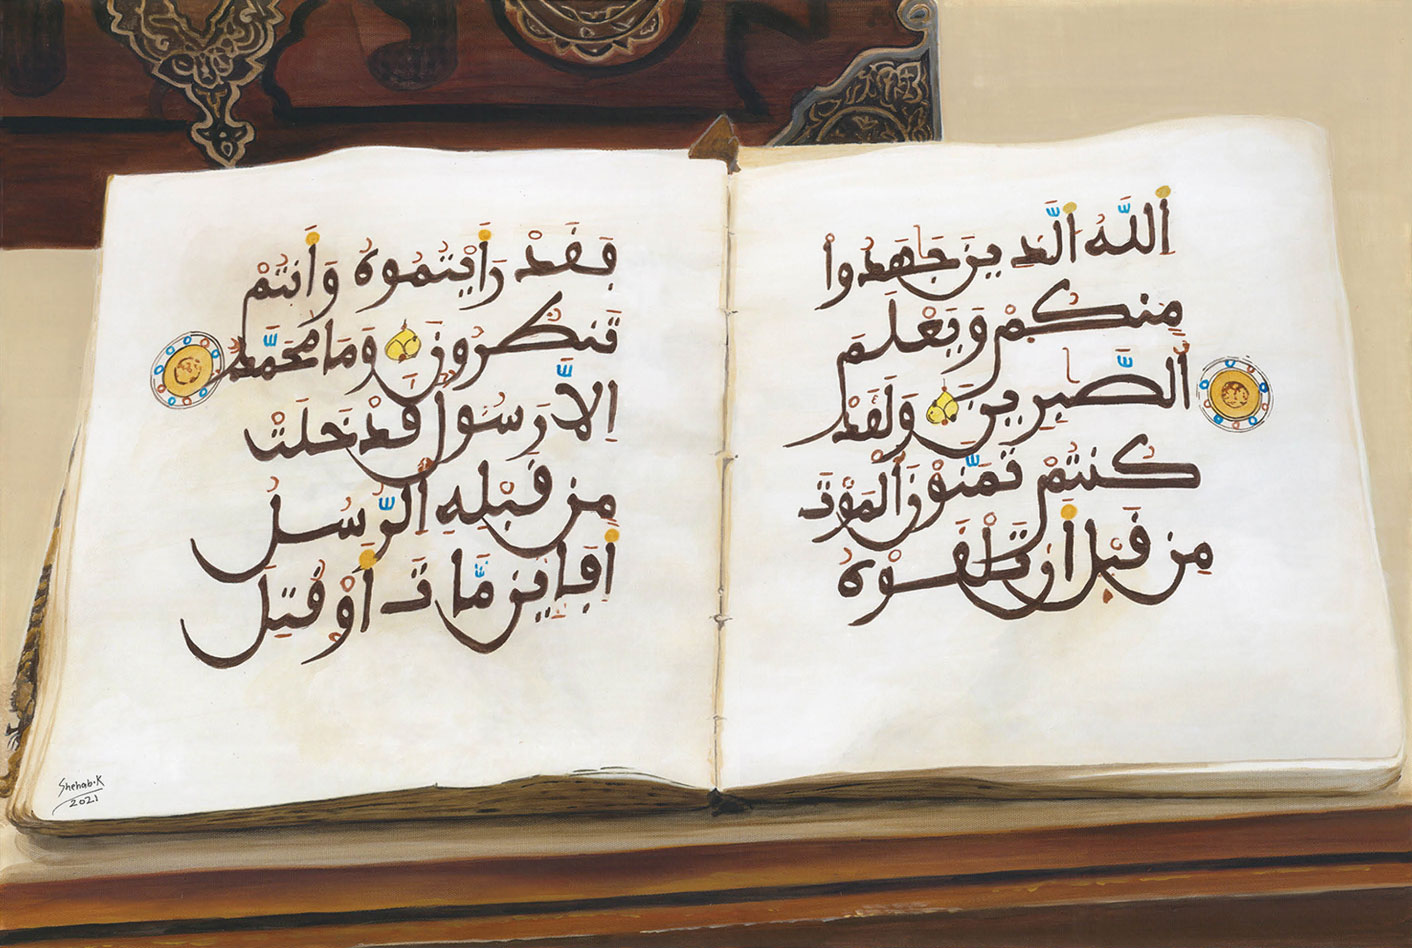 اَللَّهُ اَلَّذِينَ جَٰهَدُواْ
مِنكُمْ وَيَعْلَمَ
اَلصَّٰبِرِينَ وَلَقَدْ
كُنتُمْ تَمَنَّوْنَ اَلْمَوْتَ
مِن قَبْلِ أَن تَلْقَوْهُ
فَقَدْ رَأَيْتُمُوهُ وَأَنتُمْ
تَنظُرُونَ وَمَا مُحَمَّدٌ
إِلَّا رَسُولٌ قَدْ خَلَتْ
مِن قَبْلِهِ اِلرُّسُلُ
أَفَإِيْن مَّاتَ أَوْ قُتِلَ
Shehab.K
2021